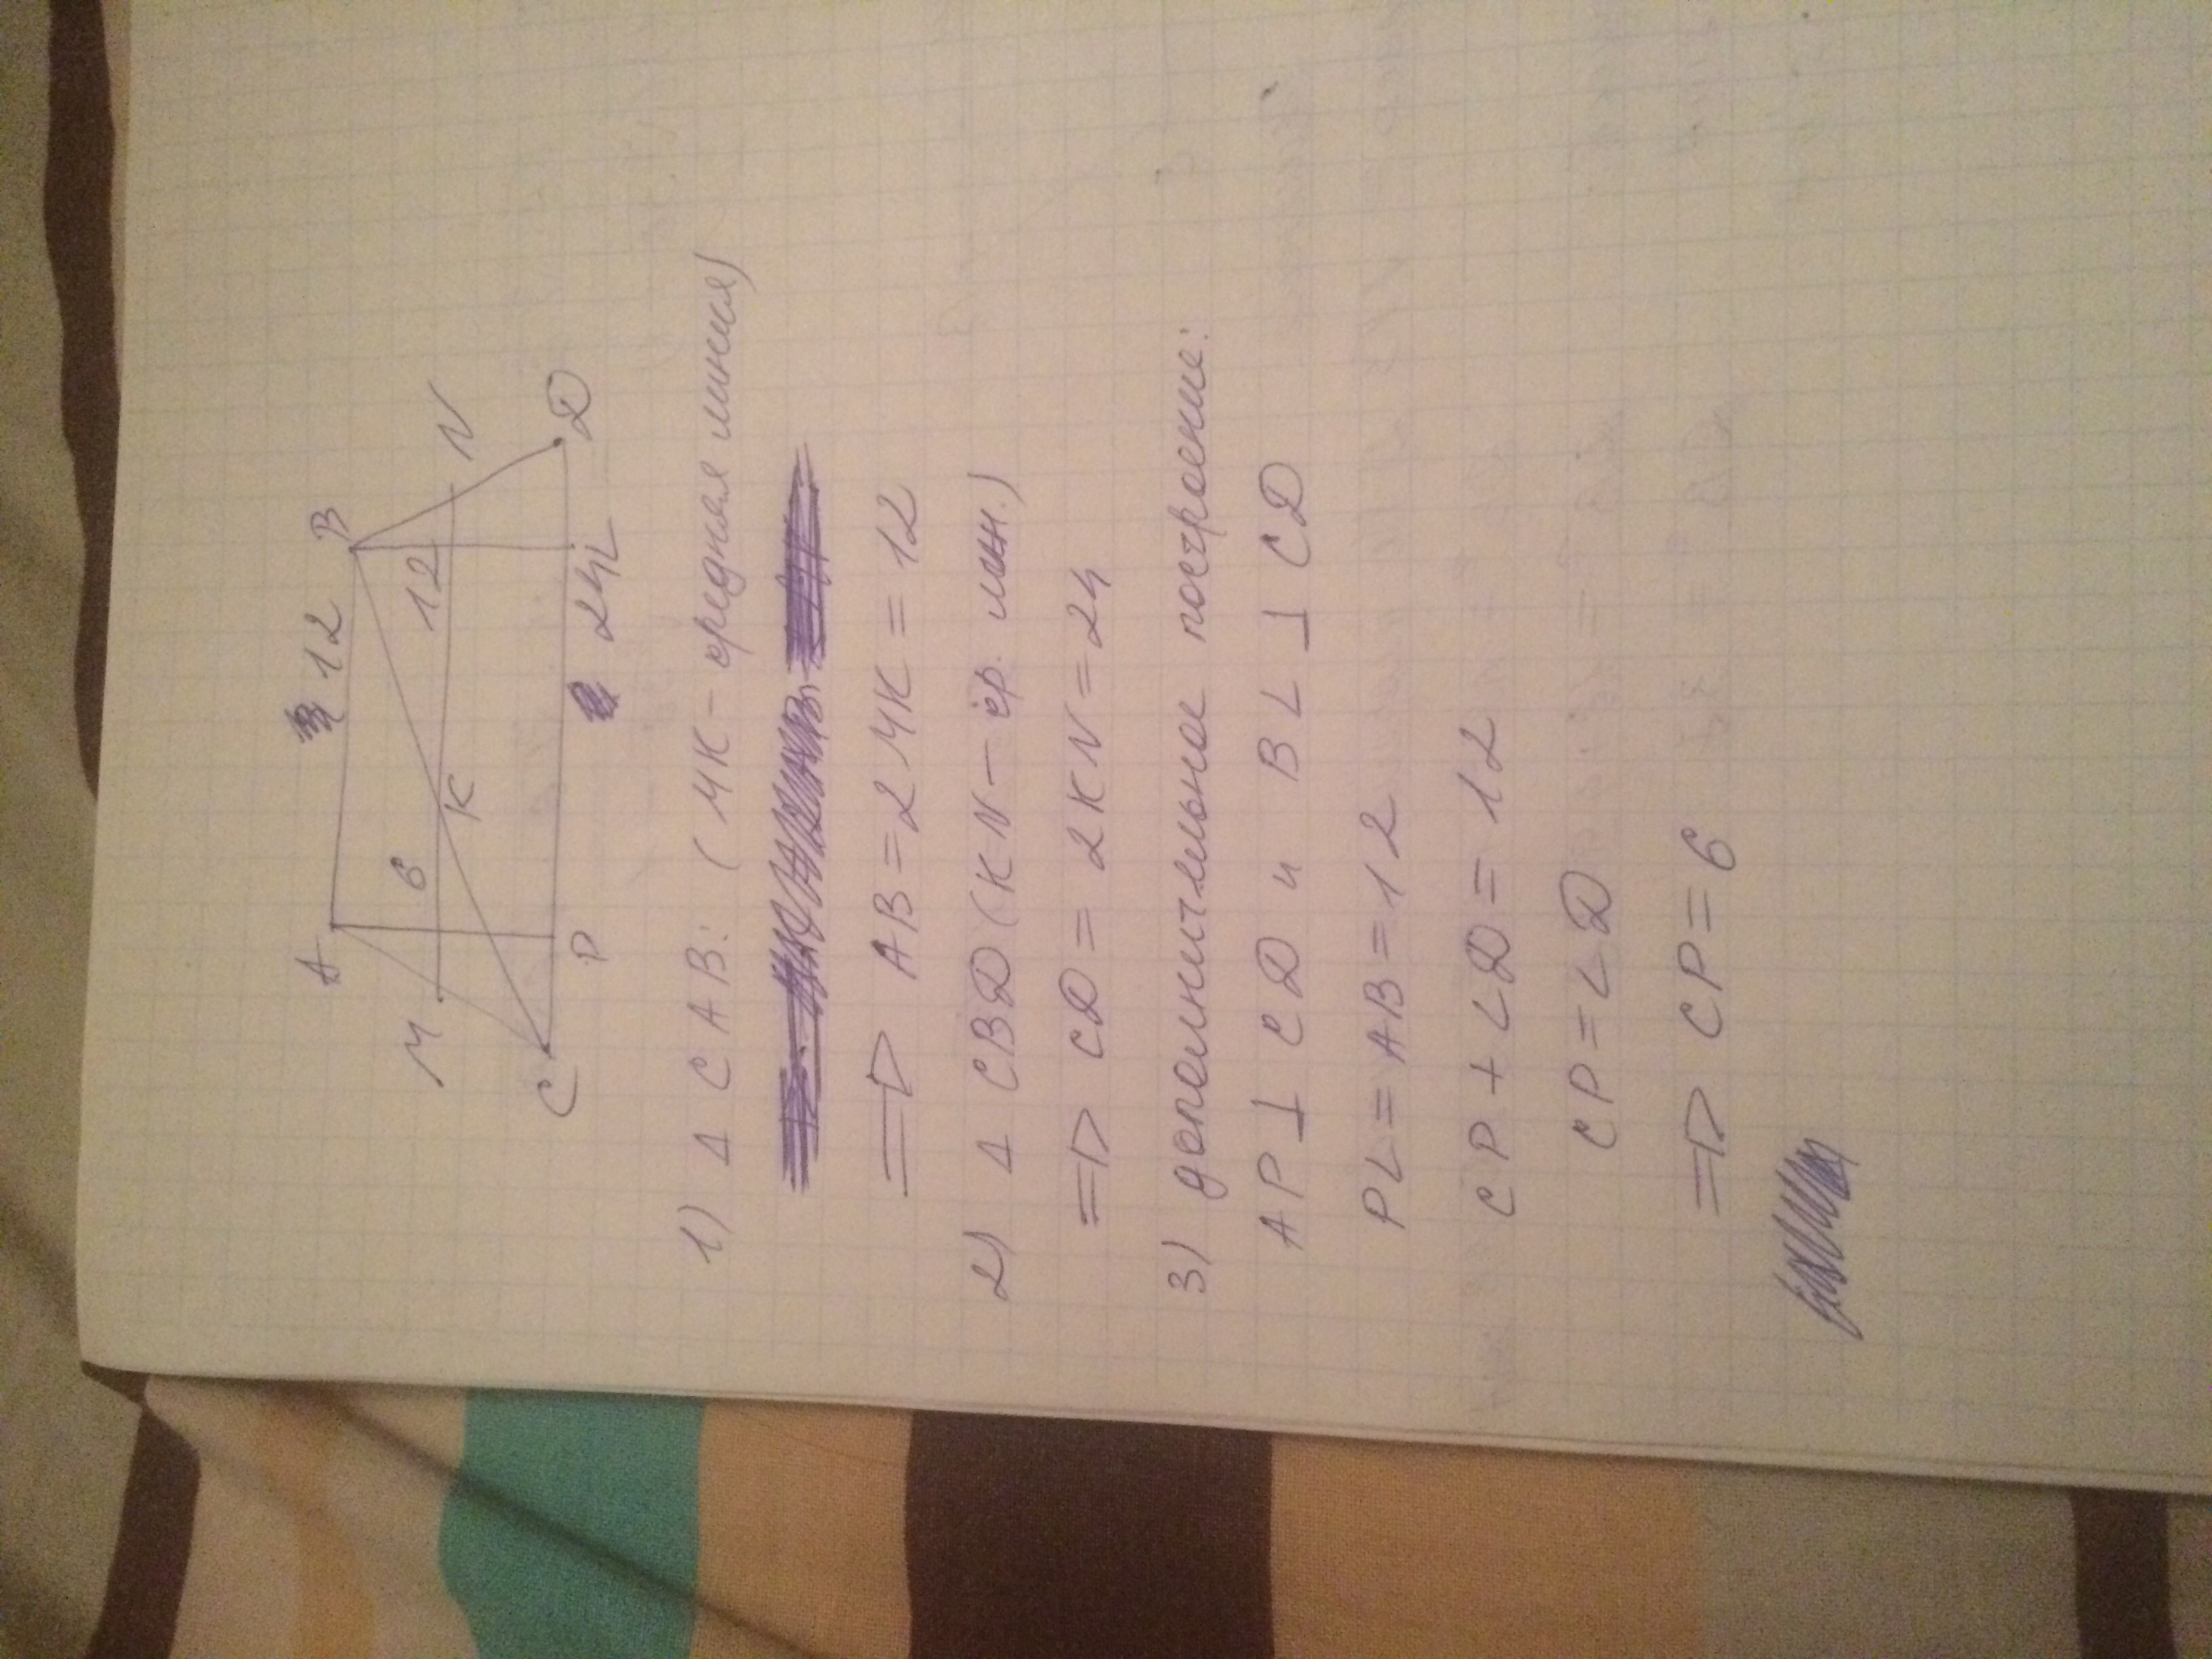 A 12 B
M 6 K 12 N
C P 24 L D
1) Δ CAB: (MK - средняя линия)
=> AB = 2MK = 12
2) Δ CBD (KN - ср. лин.)
=> CD = 2KN = 24
3) дополнительное построение:
AP ⊥ CD и BL ⊥ CD
PL = AB = 12
CP + LD = 12
CP = LD
=> CP = 6